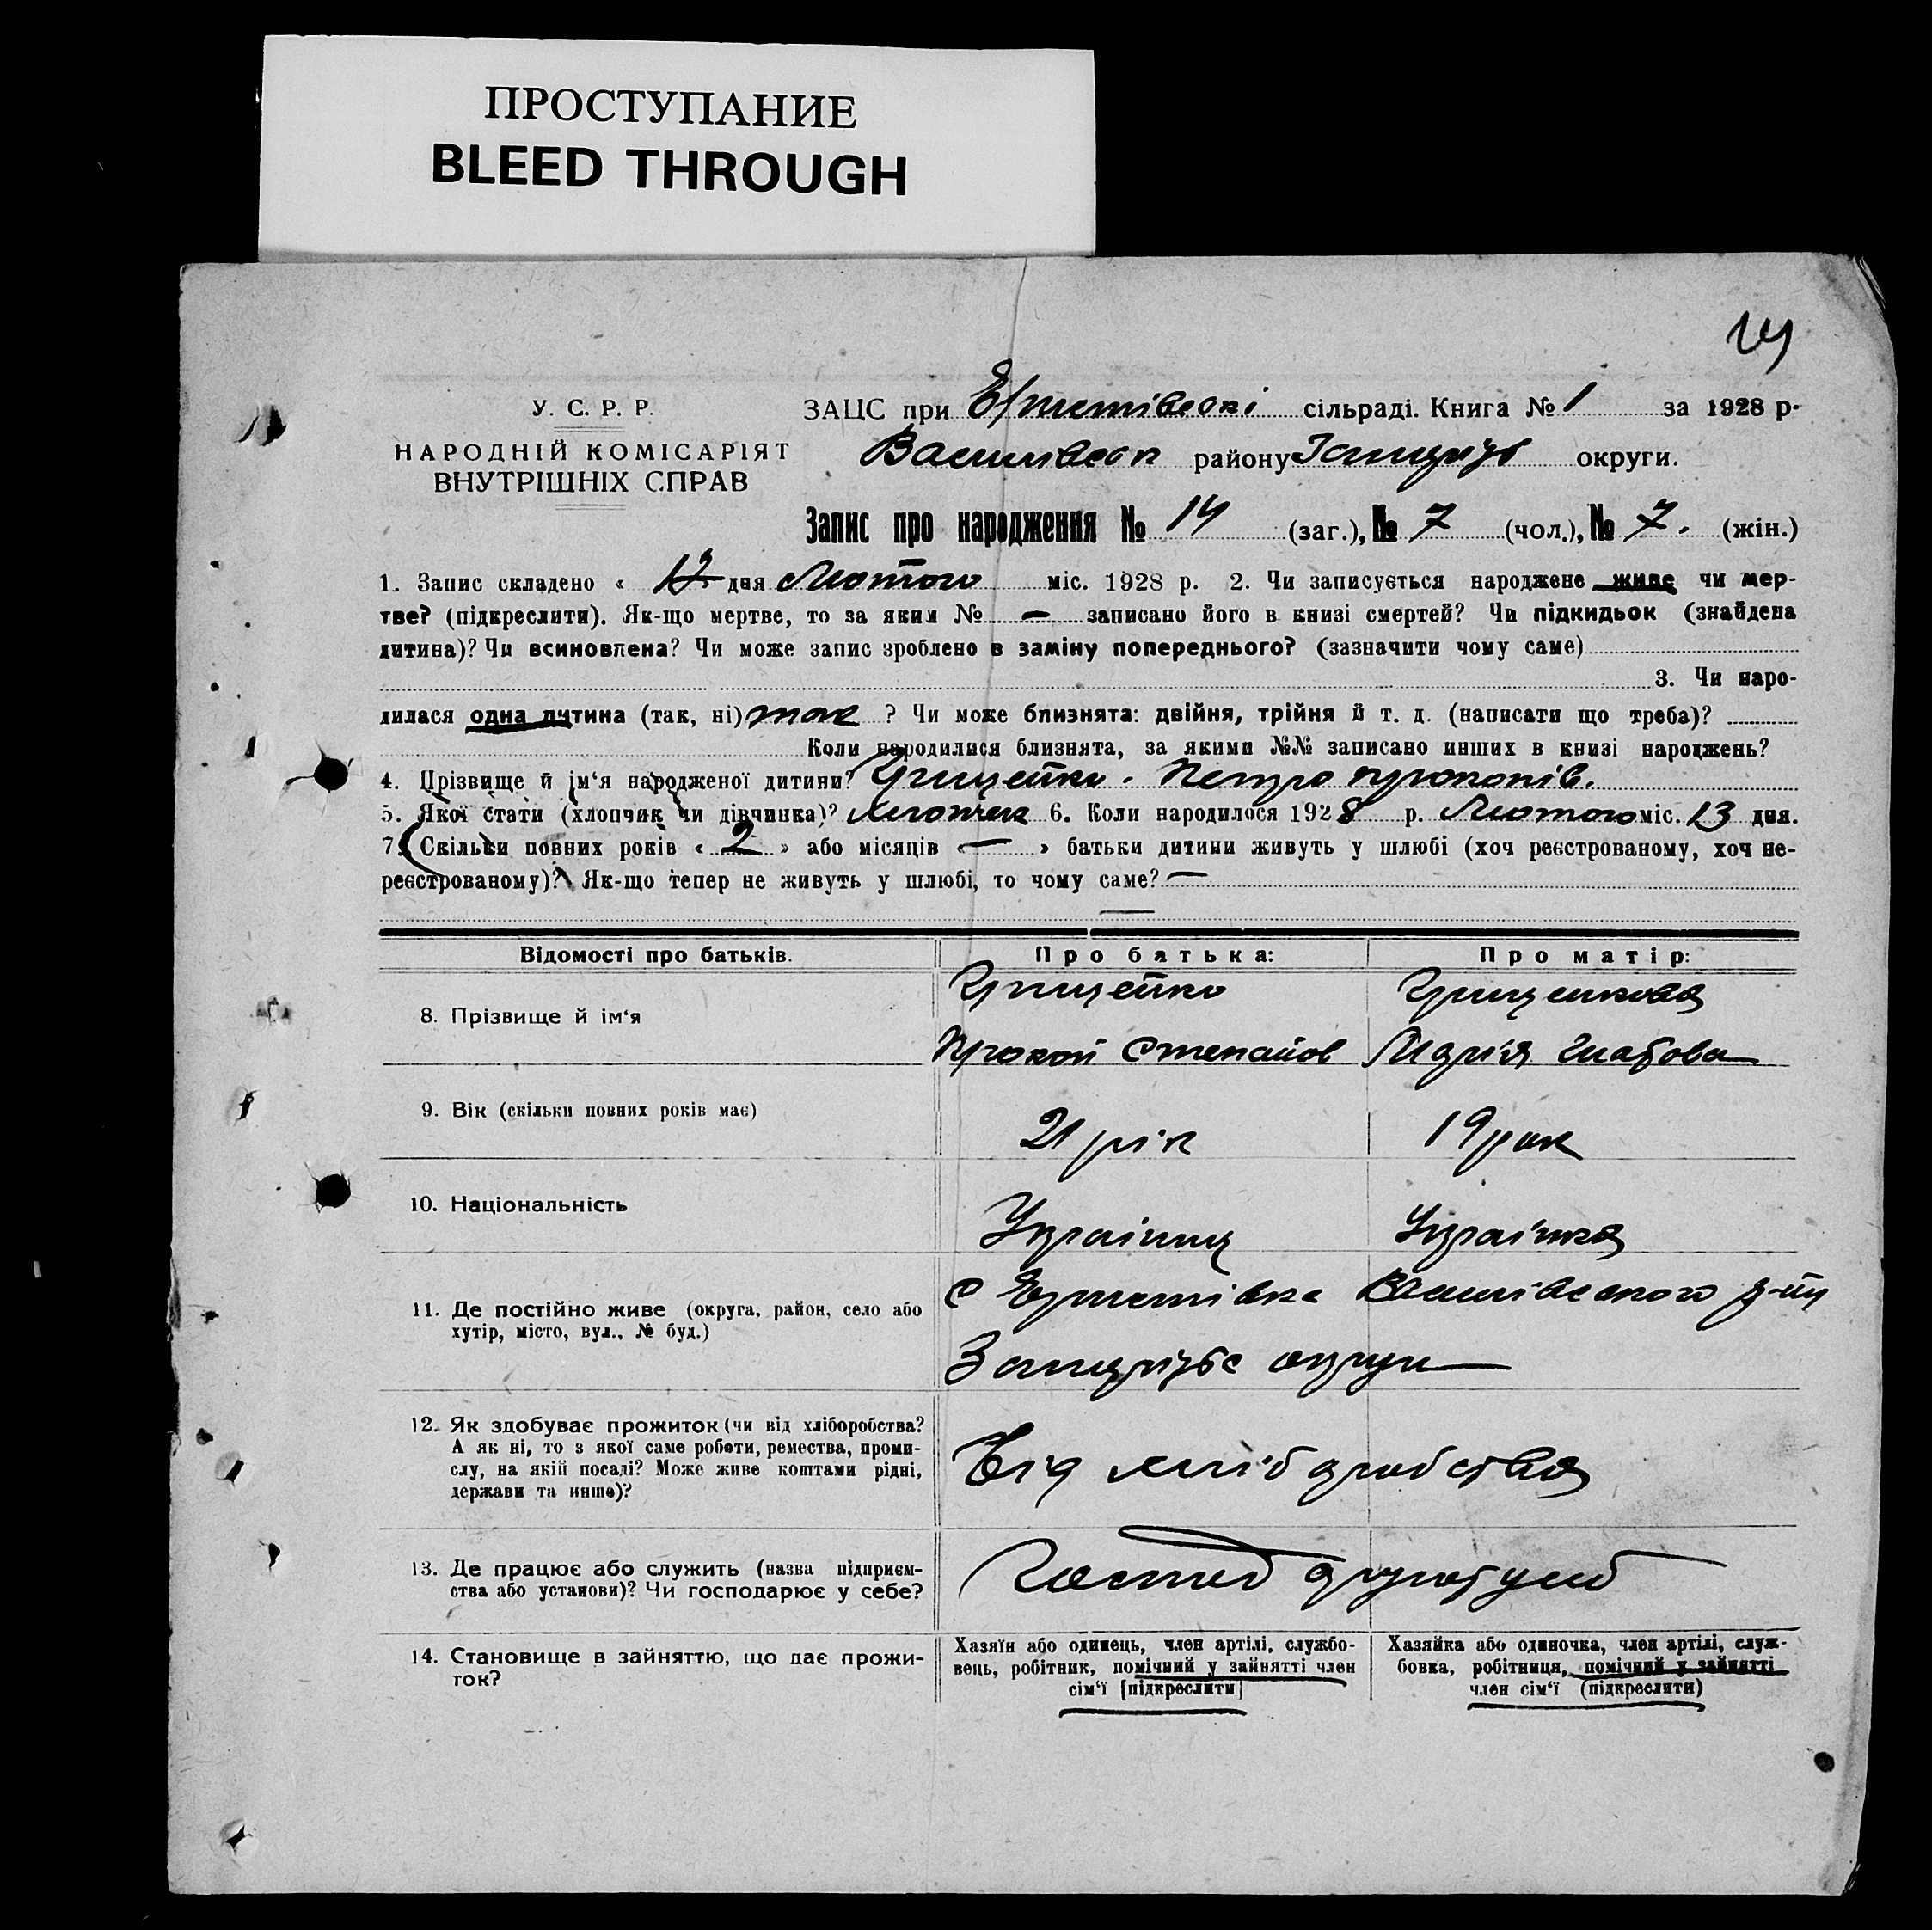 ПРОСТУПАНИЕ
BLEED THROUGH
14
У. С. Р. Р.
НАРОДНІЙ КОМІСАРІЯТ
ВНУТРІШНІХ СПРАВ
ЗАЦС при сільраді. Книга № 1 за 1928 р.
Василівськ району округи.
Запис про народження № 14 (заг.), № 7 (чол.), № 7. (жін.)
1. Запис складено « дня Лютого міс. 1928 р. 2. Чи записується народжене живе чи мер-
тве? (підкреслити). Як-що мертве, то за яким № — записано його в книзі смертей? Чи підкидьок (знайдена
дитина)? Чи всиновлена? Чи може запис зроблено в заміну попереднього? (зазначити чому саме)
3. Чи наро-
дилася одна дитина (так, ні) так ? Чи може близнята: двійня, трійня й т. д. (написати що треба)?
Коли народилися близнята, за якими №№ записано инших в книзі народжень?
4. Прізвище й ім'я народженої дитини? Грищенко Петро Прокопів.
5. Якої стати (хлопчик чи дівчинка)? хлопчик 6. Коли народилося 1928 р. Лютого міс. 13 дня.
7. Скільки повних років « 2 » або місяців « — » батьки дитини живуть у шлюбі (хоч реєстрованому, хоч не-
реєстрованому)? Як-що тепер не живуть у шлюбі, то чому саме? —
—
Відомості про батьків. Про батька: Про матір:
8. Прізвище й ім'я
Грищенко Грищенкова
Прокоп Степанов Марія
9. Вік (скільки повних років має)
21 рік 19 рок
10. Національність
Українец Українка
11. Де постійно живе (округа, район, село або
хутір, місто, вул., № буд.)
с Василівського р-ну
округи
12. Як здобуває прожиток (чи від хліборобства?
А як ні, то з якої саме роботи, ремества, проми-
слу, на якій посаді? Може живе коштами рідні,
держави та инше)?
Від хліборобства
13. Де працює або служить (назва підприєм-
ства або установи)? Чи господарює у себе?
14. Становище в зайняттю, що дає прожи-
ток?
Хазяїн або одинець, член артілі, службо-
вець, робітник, помічний у зайнятті член
сім'ї [підкреслити]
Хазяйка або одиночка, член артілі, служ-
бовка, робітниця, помічний у зайнятті
член сім'ї (підкреслити)